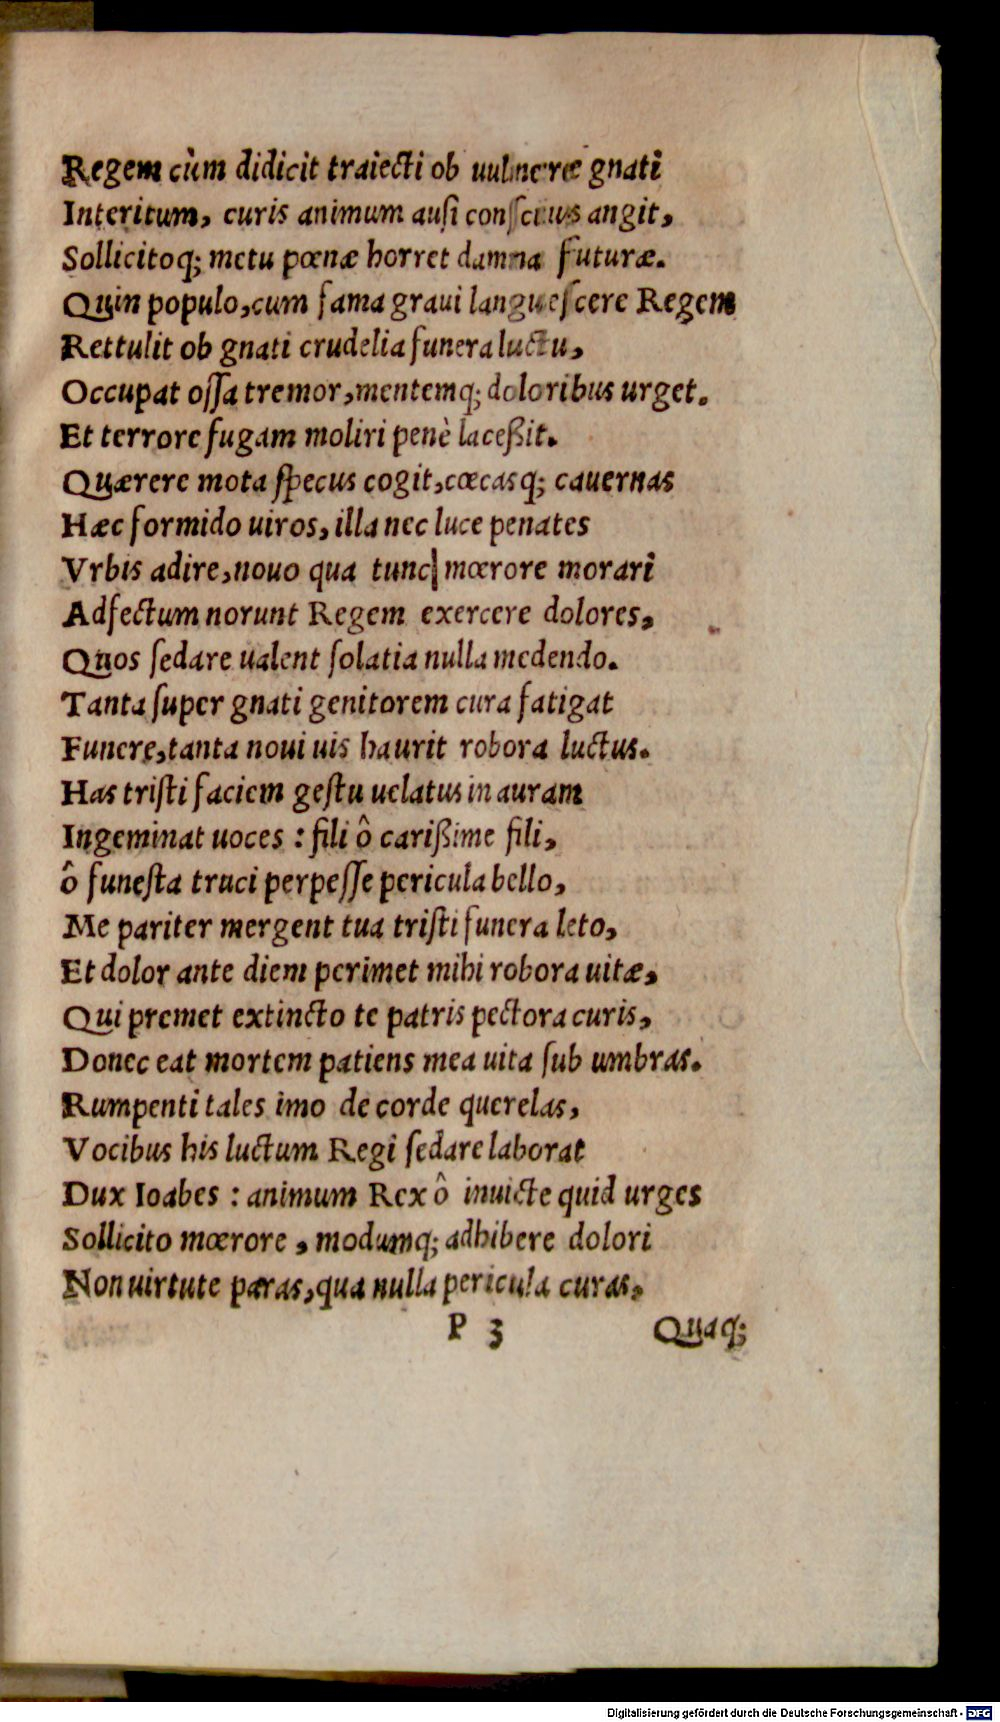 Regem cùm didicit traiecti ob uulneræ gnati
Interitum, curis animum ausi conscius angit,
Sollicitoq; metu pœnæ horret damna futuræ.
Quin populo, cum fama graui languescere Regem
Rettulit ob gnati crudelia funera luctu,
Occupat ossa tremor, mentemq; doloribus urget.
Et terrore fugam moliri penè laceßit.
Quærere mota specus cogit, cœcasq; cauernas
Hæc formido uiros, illa nec luce penates
Vrbis adire, nouo qua tunc mœrore morari
Adfectum norunt Regem exercere dolores,
Quos sedare ualent solatia nulla medendo.
Tanta super gnati genitorem cura fatigat
Funere, tanta noui uis haurit robora luctus.
Has tristi faciem gestu uelatus in auram
Ingeminat uoces : fili ô carißime fili,
ô funesta truci perpesse pericula bello,
Me pariter mergent tua tristi funera leto,
Et dolor ante diem perimet mihi robora uitæ,
Qui premet extincto te patris pectora curis,
Donec eat mortem patiens mea uita sub umbras.
Rumpenti tales imo de corde querelas,
Vocibus his luctum Regi sedare laborat
Dux Ioabes : animum Rex ô inuicte quid urges
Sollicito mœrore, modumq; adhibere dolori
Non uirtute paras, qua nulla pericula curas,
P 3 Quaq;
Digitalisierung gefördert durch die Deutsche Forschungsgemeinschaft - DFG